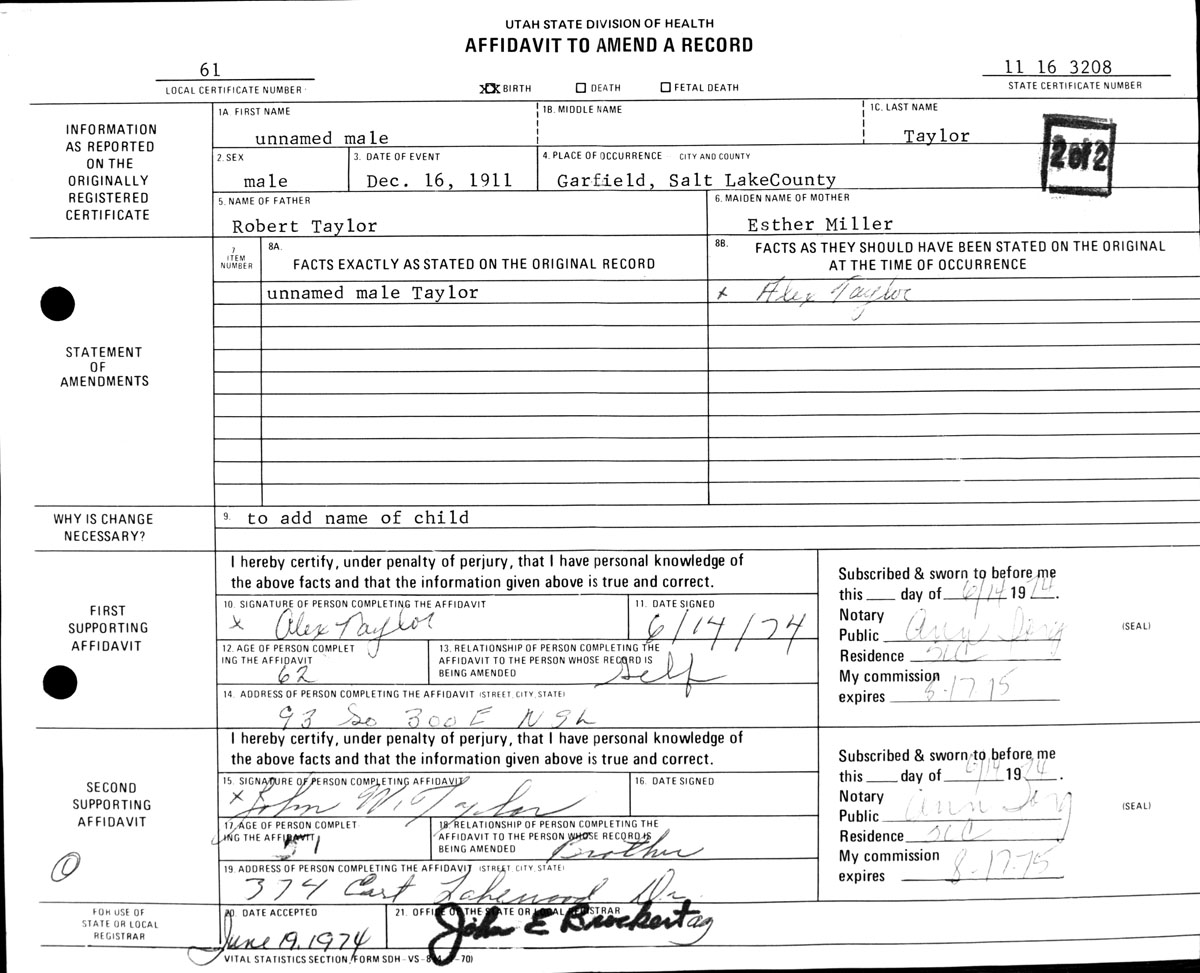 UTAH STATE DIVISION OF HEALTH
AFFIDAVIT TO AMEND A RECORD
61
LOCAL CERTIFICATE NUMBER
XX BIRTH
DEATH
FETAL DEATH
11 16 3208
STATE CERTIFICATE NUMBER
INFORMATION
AS REPORTED
ON THE
ORIGINALLY
REGISTERED
CERTIFICATE
1A. FIRST NAME
unnamed male
1B. MIDDLE NAME
1C. LAST NAME
Taylor
2 of 2
2. SEX
male
3. DATE OF EVENT
Dec. 16, 1911
4. PLACE OF OCCURRENCE CITY AND COUNTY
Garfield, Salt LakeCounty
5. NAME OF FATHER
Robert Taylor
6. MAIDEN NAME OF MOTHER
Esther Miller
STATEMENT
OF
AMENDMENTS
7
ITEM
NUMBER
8A.
FACTS EXACTLY AS STATED ON THE ORIGINAL RECORD
8B. FACTS AS THEY SHOULD HAVE BEEN STATED ON THE ORIGINAL
AT THE TIME OF OCCURRENCE
unnamed male Taylor
x Alex Taylor
WHY IS CHANGE
NECESSARY?
9. to add name of child
FIRST
SUPPORTING
AFFIDAVIT
I hereby certify, under penalty of perjury, that I have personal knowledge of
the above facts and that the information given above is true and correct.
10. SIGNATURE OF PERSON COMPLETING THE AFFIDAVIT
x Alex Taylor
11. DATE SIGNED
6/14/74
12. AGE OF PERSON COMPLET
ING THE AFFIDAVIT
62
13. RELATIONSHIP OF PERSON COMPLETING THE
AFFIDAVIT TO THE PERSON WHOSE RECORD IS
BEING AMENDED
Self
14. ADDRESS OF PERSON COMPLETING THE AFFIDAVIT (STREET, CITY, STATE)
93 So 300 E NSL
Subscribed & sworn to before me
this day of 6/14 1974.
Notary
Public Ann
Residence SLC
My commission
expires 8-17-75
(SEAL)
SECOND
SUPPORTING
AFFIDAVIT
I hereby certify, under penalty of perjury, that I have personal knowledge of
the above facts and that the information given above is true and correct.
15. SIGNATURE OF PERSON COMPLETING AFFIDAVIT
x John W. Taylor
16. DATE SIGNED
17. AGE OF PERSON COMPLET
ING THE AFFIDAVIT
18. RELATIONSHIP OF PERSON COMPLETING THE
AFFIDAVIT TO THE PERSON WHOSE RECORD IS
BEING AMENDED
Brother
19. ADDRESS OF PERSON COMPLETING THE AFFIDAVIT (STREET, CITY, STATE)
374 East Lakewood Dr.
Subscribed & sworn to before me
this day of 6/14 1974.
Notary
Public Ann
Residence SLC
My commission
expires 8-17-75
(SEAL)
FOR USE OF
STATE OR LOCAL
REGISTRAR
20. DATE ACCEPTED
June 19, 1974
21. OFFICE OF THE STATE OR LOCAL REGISTRAR
John E Brockert
VITAL STATISTICS SECTION/FORM SDH-VS-